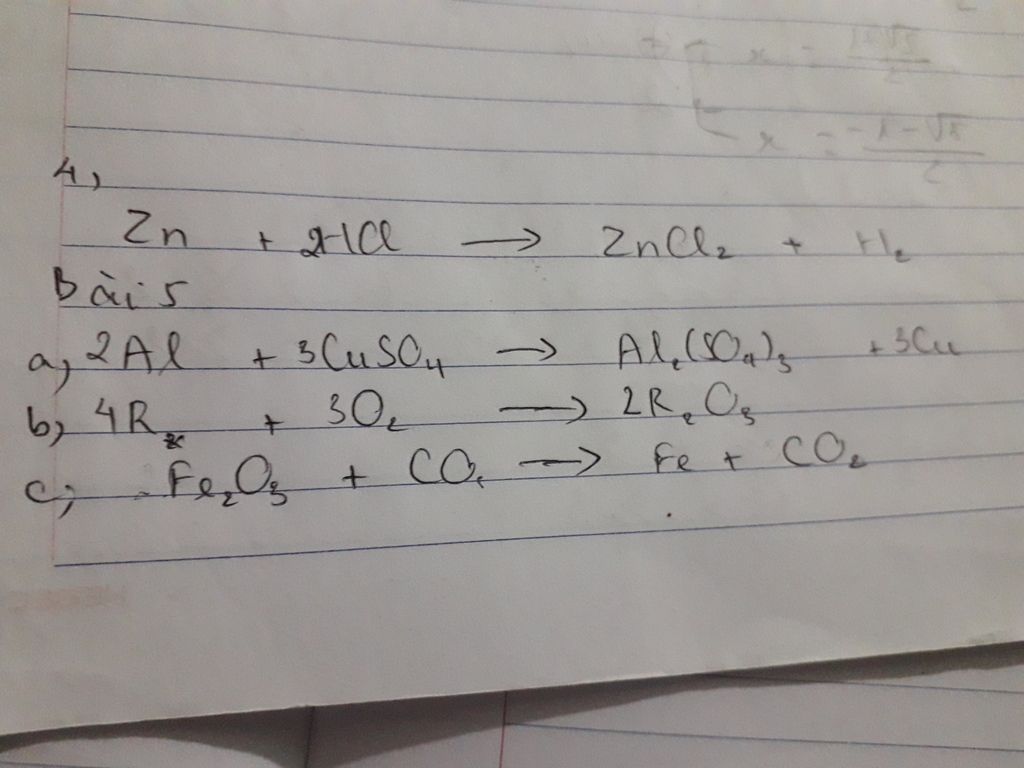 4,
Zn + 2HCl → ZnCl₂ + H₂
Bài 5
a, 2Al + 3CuSO₄ → Al₂(SO₄)₃ + 3Cu
b, 4R + 3O₂ → 2R₂O₃
c, Fe₂O₃ + CO → Fe + CO₂